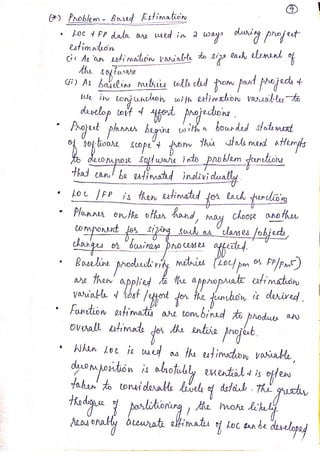 9
(*) Problem - Based Estimation
• LOC & FP data are used in 2 ways during project
estimation
(i) As an estimation variable to size each element of
the software
(ii) As baseline metrics collected from past projects &
use in conjunction with estimation variables to
develop cost & effort projections.
• Project planner begins with a bounded statement
of software scope & from this statement attempts
to decompose software into problem functions
that can be estimated individually.
• LOC / FP is then estimated for each function
• Planner on the other hand, may choose another
component for sizing such as classes/objects,
changes or business processes affected.
• Baseline productivity metrics (LOC/pm or FP/pm)
are then applied to the appropriate estimation
variable & cost/effort for the function is derived.
• Function estimates are combined to produce an
overall estimate for the entire project.
• When LOC is used as the estimation variable,
decomposition is absolutely essential & is often
taken to considerable levels of detail. The greater
the degree of partitioning, the more likely
reasonably accurate estimates of LOC can be developed